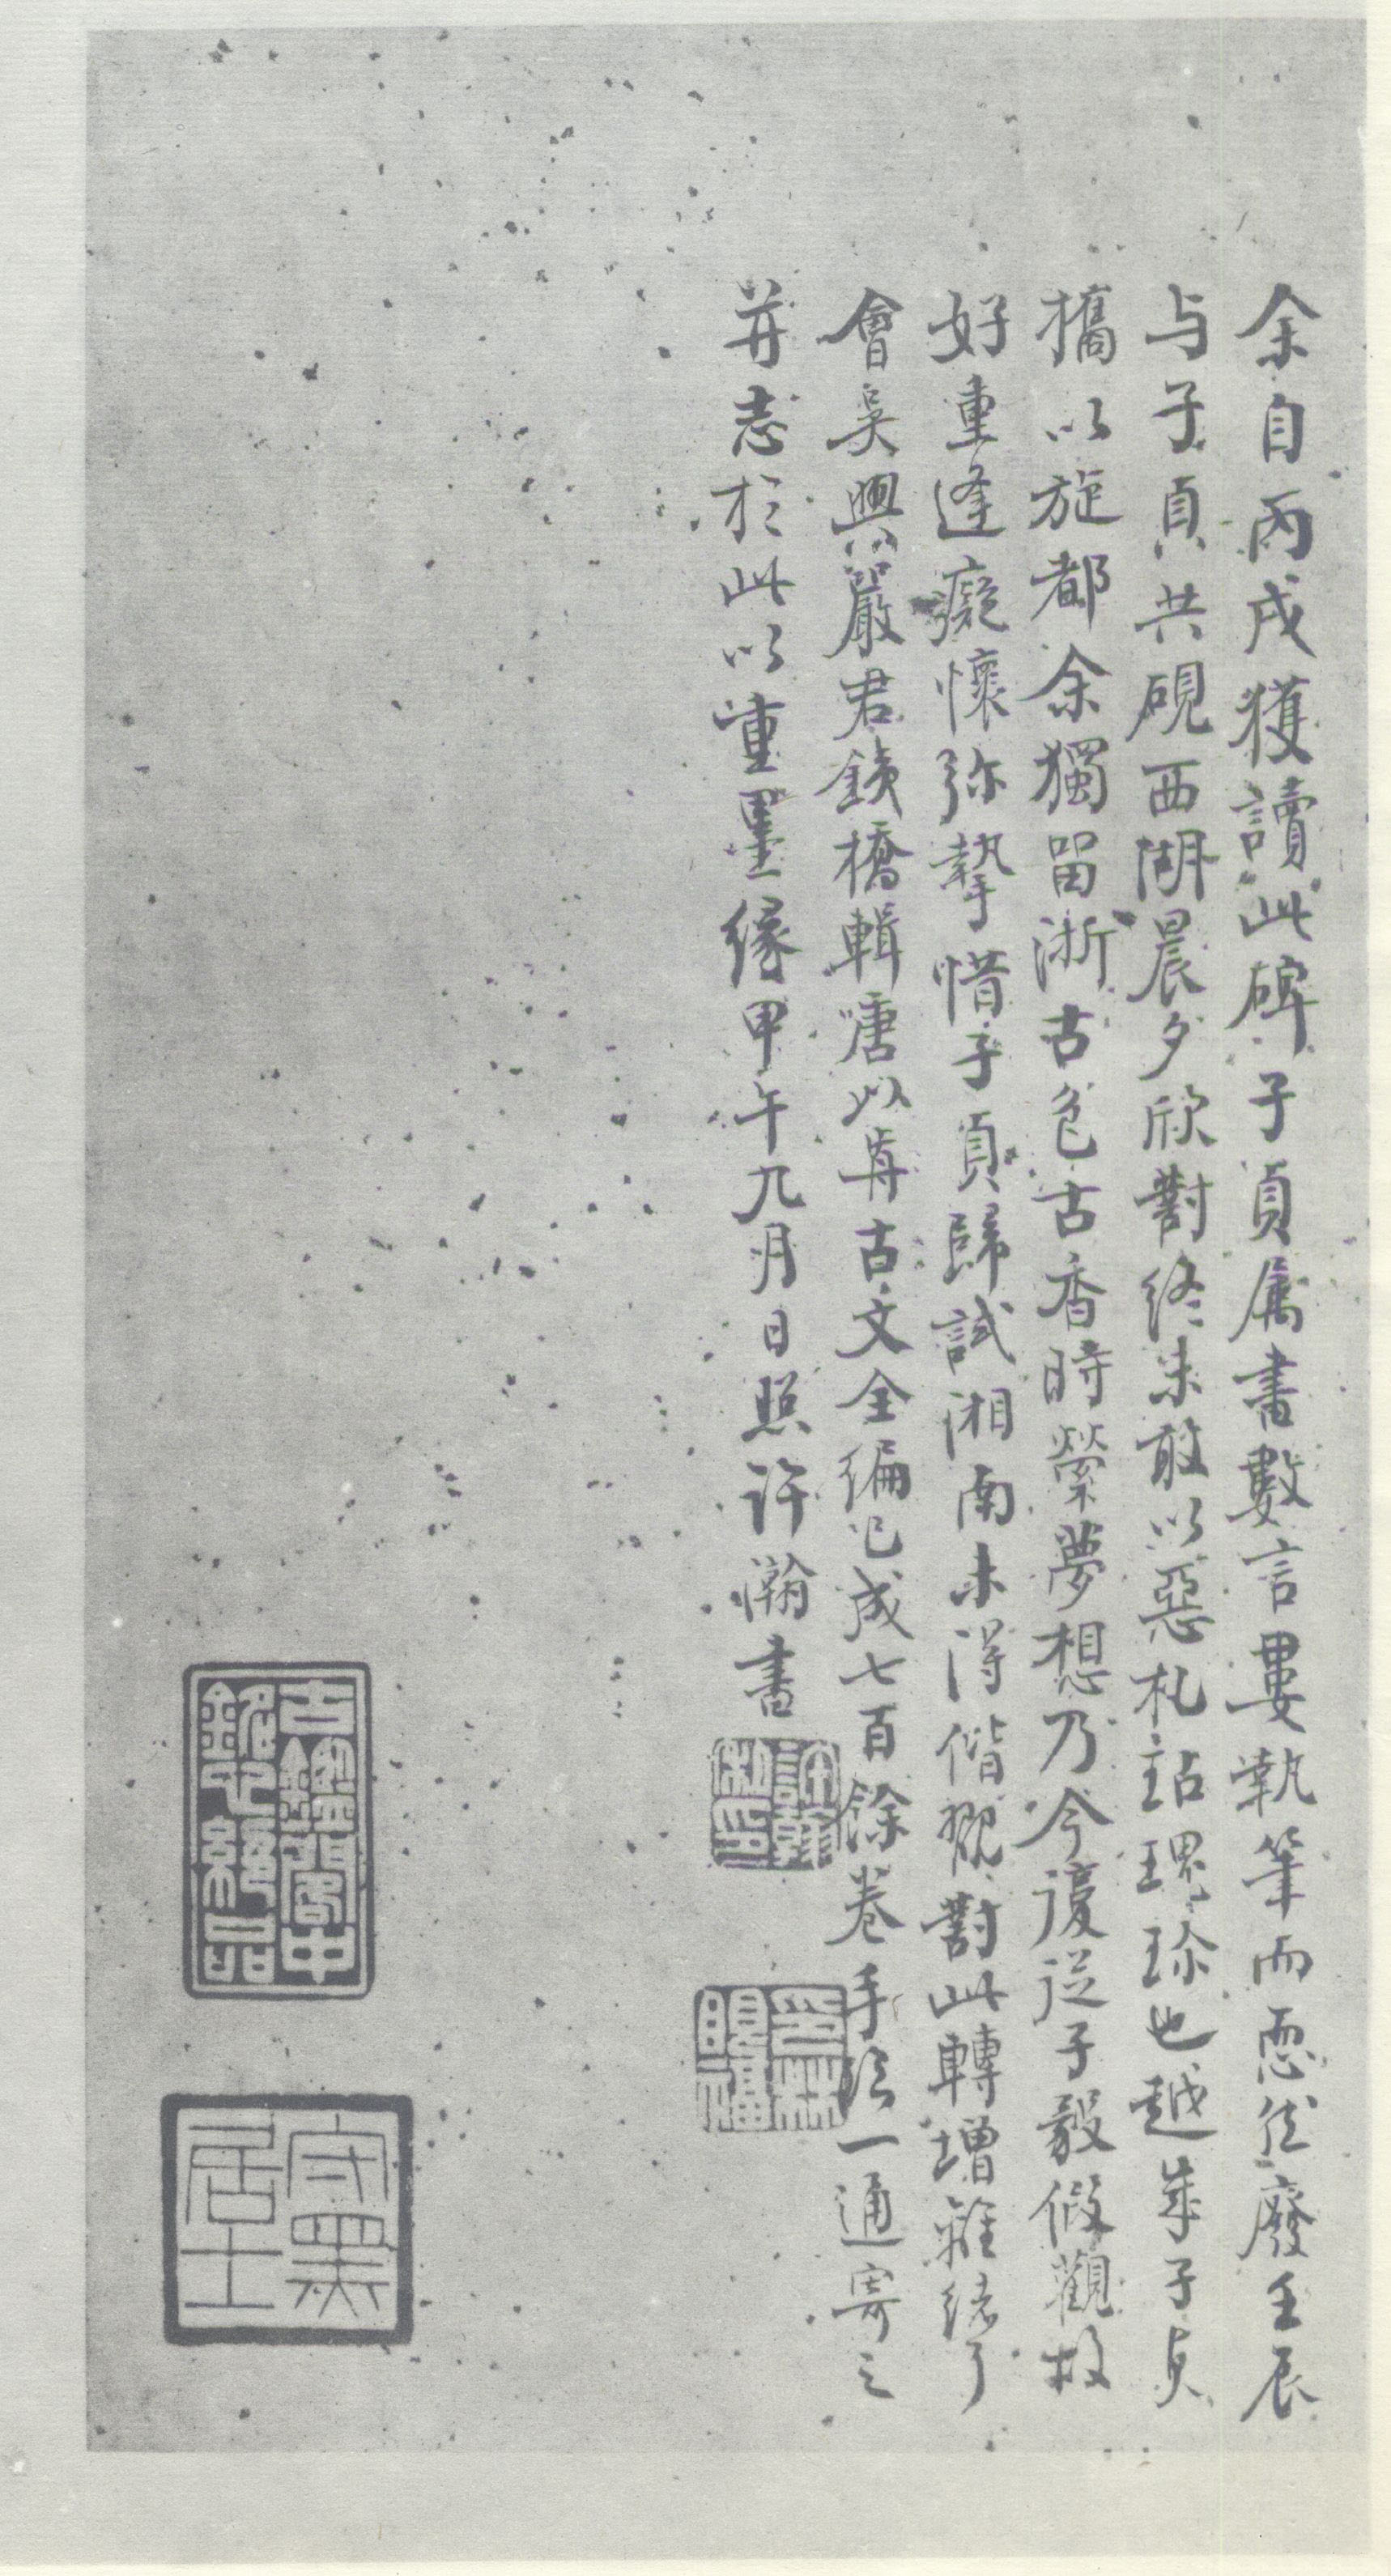 余自丙戌獲讀此碑子貞属書數言屢執筆而恧然廢壬辰
与子貞共硯西湖晨夕欣對終未敢以惡札玷瑰珎也越歲子貞
攜以旋都余獨留浙古色古香時縈夢想乃今復從子毅假觀故
好重逢癡懷弥摯惜子貞歸試湘南未得偕觀對此轉增離緒了
會吳興嚴君鐵橋輯唐以歬古文全編已成七百餘卷手錄一通寄之
并志於此以重墨緣甲午九月日照許瀚書
許瀚私印
印林眼福
守黑居士